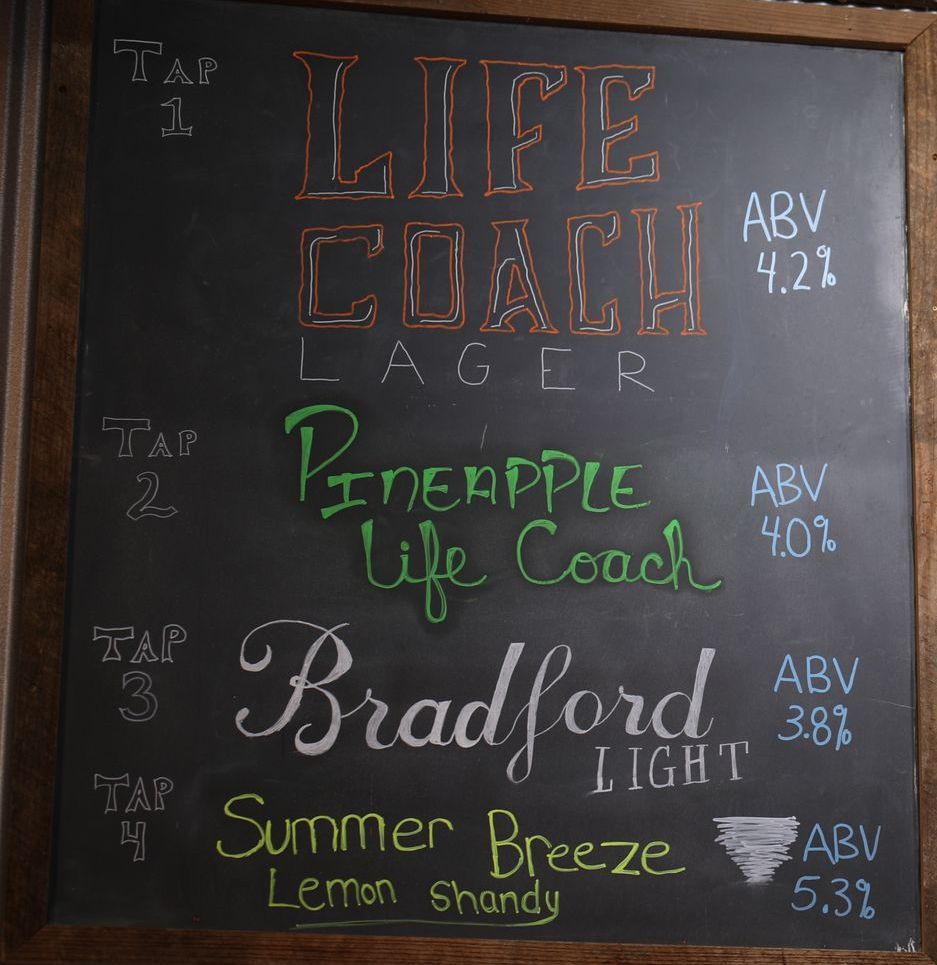 TAP
1
LIFE
COACH
LAGER
ABV
4.2%
TAP
2
PINEAPPLE
Life Coach
ABV
4.0%
TAP
3
Bradford
LIGHT
ABV
3.8%
TAP
4
Summer Breeze
Lemon Shandy
ABV
5.3%